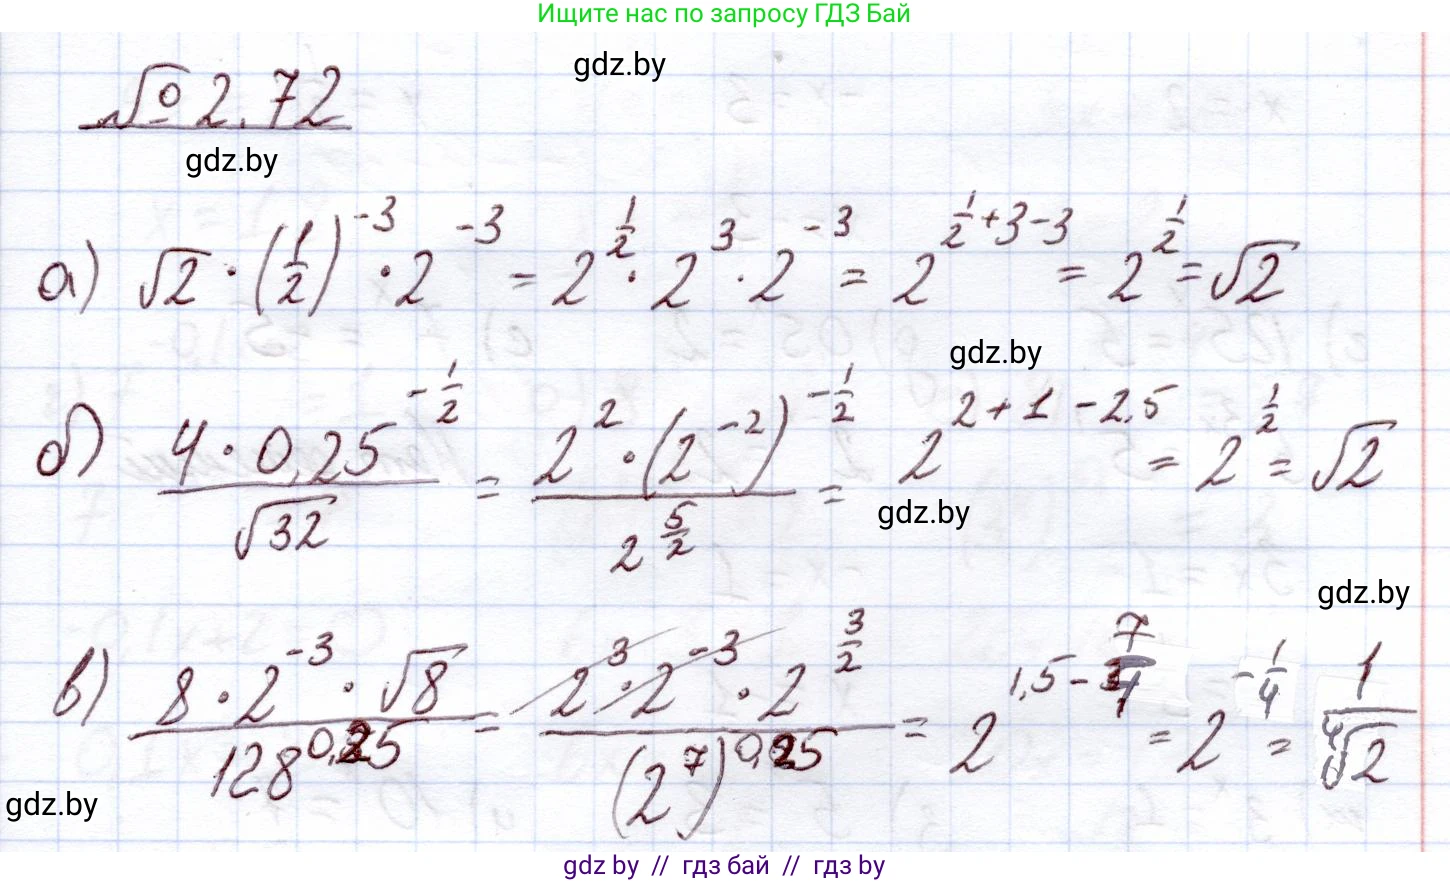 Ищите нас по запросу ГДЗ Бай
gdz.by
№ 2.72
gdz.by
а) √2 · (1/2)^-3 · 2^-3 = 2^1/2 · 2^3 · 2^-3 = 2^1/2+3-3 = 2^1/2 = √2
gdz.by
б) 4 · 0,25^-1/2 / √32 = 2^2 · (2^-2)^-1/2 / 2^5/2 = 2^2+1-2,5 = 2^1/2 = √2
gdz.by
gdz.by
в) 8 · 2^-3 · √8 / 128^0,25 = 2^3 · 2^-3 · 2^3/2 / (2^7)^0,25 = 2^1,5-7/4 = 2^-1/4 = 1/⁴√2
gdz.by
gdz by // гдз бай // гдз by